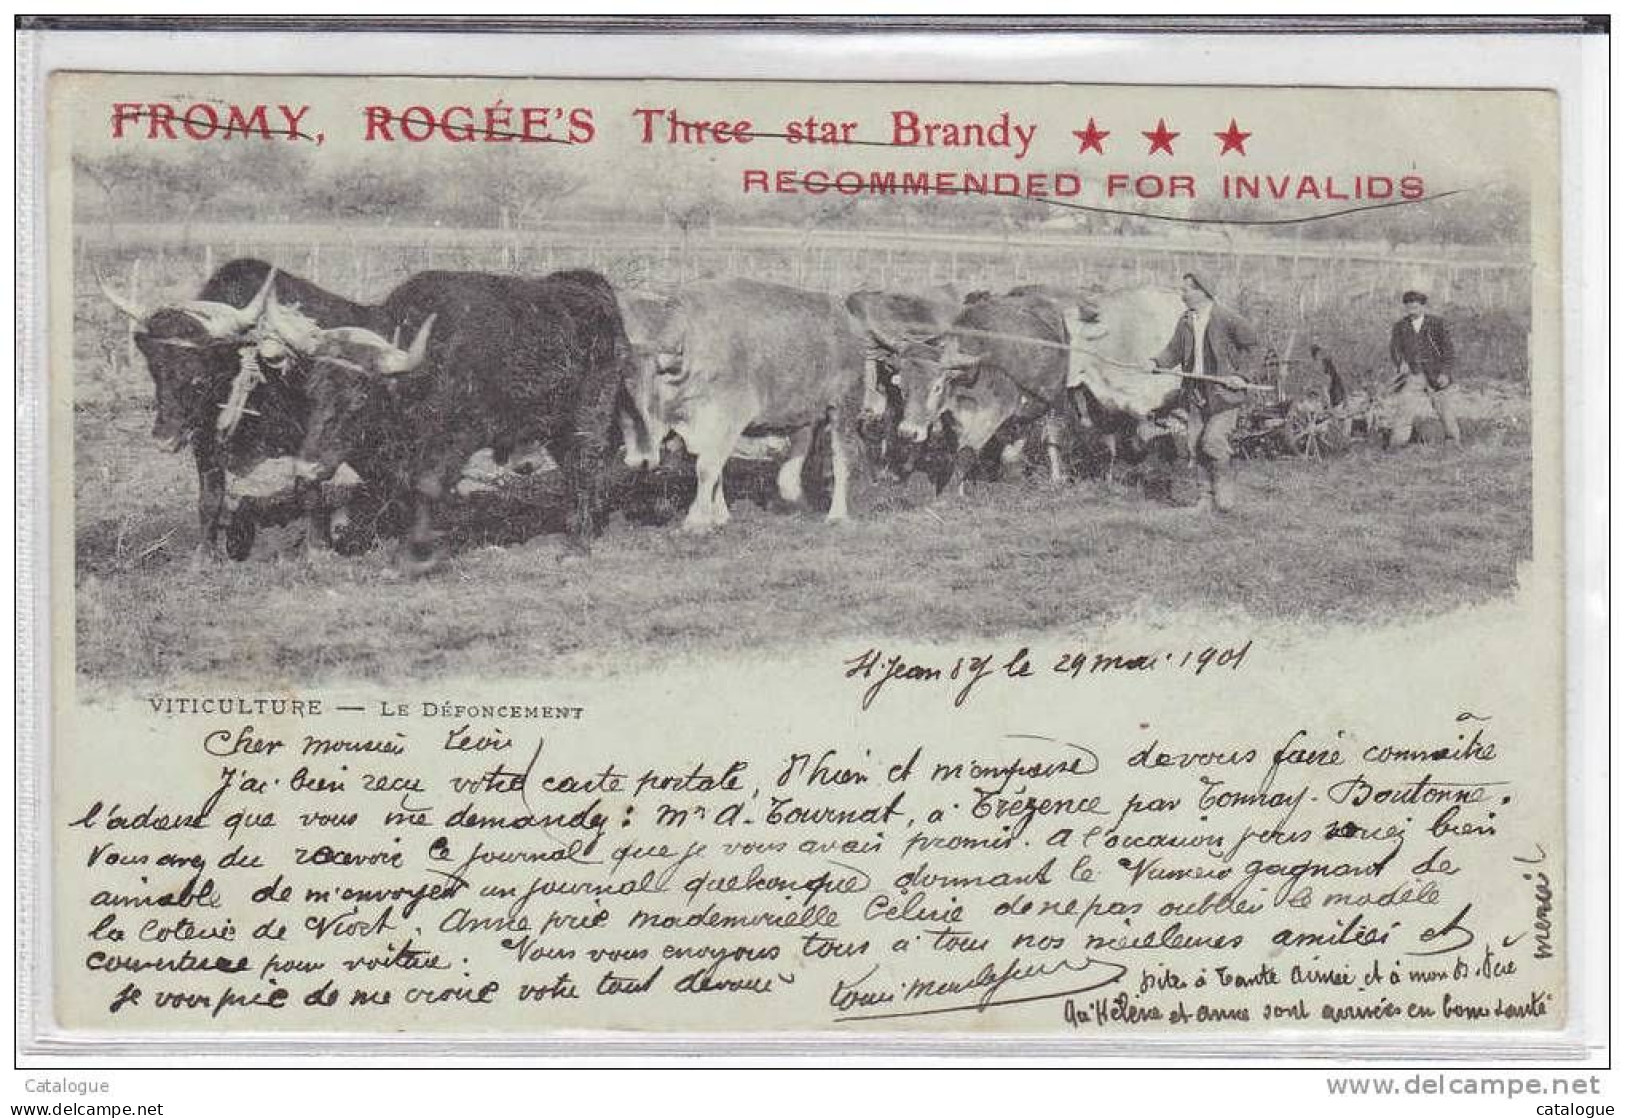 FROMY, ROGÉE'S Three star Brandy ★ ★ ★
RECOMMENDED FOR INVALIDS
St. Jean d'y le 29 mai 1901
VITICULTURE — LE DÉFONCEMENT
Cher monsieur Léon
J'ai bien reçu votre carte postale, d'hier et m'empresse de vous faire connaître
l'adresse que vous me demandez: Mr A. Tournat, à Trézence par Tonnay-Boutonne.
Vous avez du recevoir le journal que je vous avais promis. A l'occasion vous seriez bien
aimable de m'envoyer un journal quelconque donnant le Numéro gagnant de
la loterie de Niort. Anne prie mademoiselle Célinie de ne pas oublier le modèle
couverture pour voiture. Nous vous envoyons tous à tous nos meilleures amitiés et
je vous prie de me croire votre tout dévoué
Louis
Dites à Tante Aimée et à mon
qu'Hélène et Anne sont arrivées en bonne santé
merci
Catalogue
www.delcampe.net
catalogue
catalogue